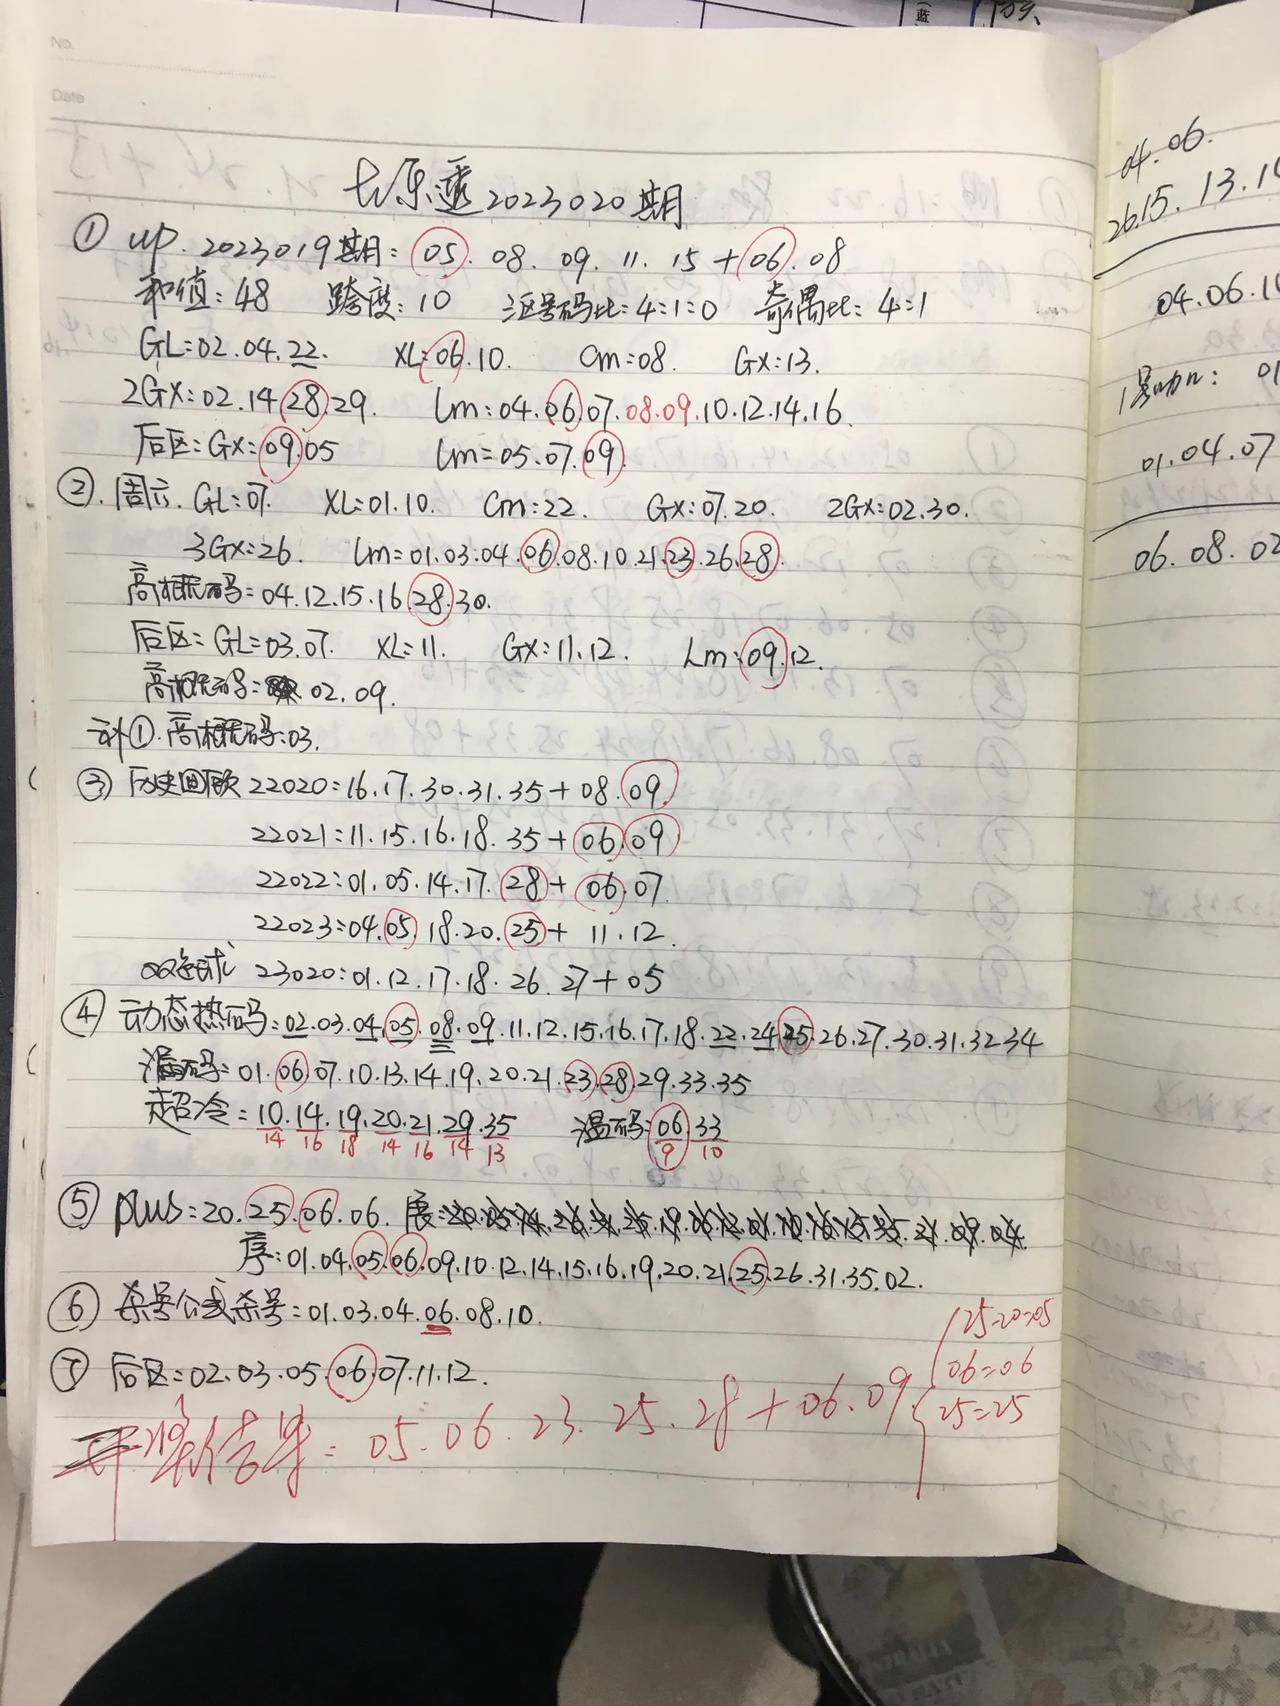 No.
Date
大乐透2023020期
① up. 2023019期: 05. 08. 09. 11. 15 + 06. 08
和值: 48 跨度: 10 三区号码比: 4:1:0 奇偶比: 4:1
GL=02.04.22. XL=06.10. Cm=08. GX=13.
2GX=02.14.28.29. Lm=04.06.07.08.09.10.12.14.16.
后区: GX=09.05 Lm=05.07.09.
②. 周六. GL=07. XL=01.10. Cm=22. GX=07.20. 2GX=02.30.
3GX=26. Lm=01.03.04.06.08.10.21.23.26.28.
高概率码=04.12.15.16.28.30.
后区: GL=03.07. XL=11. GX=11.12. Lm=09.12.
高概率码: 02.09.
补①. 高概率码:03.
③ 历史回顾 22020:16.17.30.31.35+08.09.
22021:11.15.16.18.35+06.09
22022:01.05.14.17.28+06.07.
22023:04.05.18.20.25+11.12.
双色球 23020:01.12.17.18.26.27+05
④ 动态热码=02.03.04.05.08.09.11.12.15.16.17.18.22.24.25.26.27.30.31.32.34
漏码=01.06.07.10.13.14.19.20.21.23.28.29.33.35
超冷=10.14.19.20.21.29.35 温码:06.33
14 16 18 14 16 14 13 9 10
⑤ plus=20.25.06.06. 展:
序:01.04.05.06.09.10.12.14.15.16.19.20.21.25.26.31.35.02.
⑥ 杀号公式杀号=01.03.04.06.08.10.
⑦ 后区=02.03.05.06.07.11.12.
开奖结果: 05.06.23.25.28+06.09
25-20=05
06=06
25=25
04.06.
26.15.13.1
04.06.1
01.04.07
06.08.02